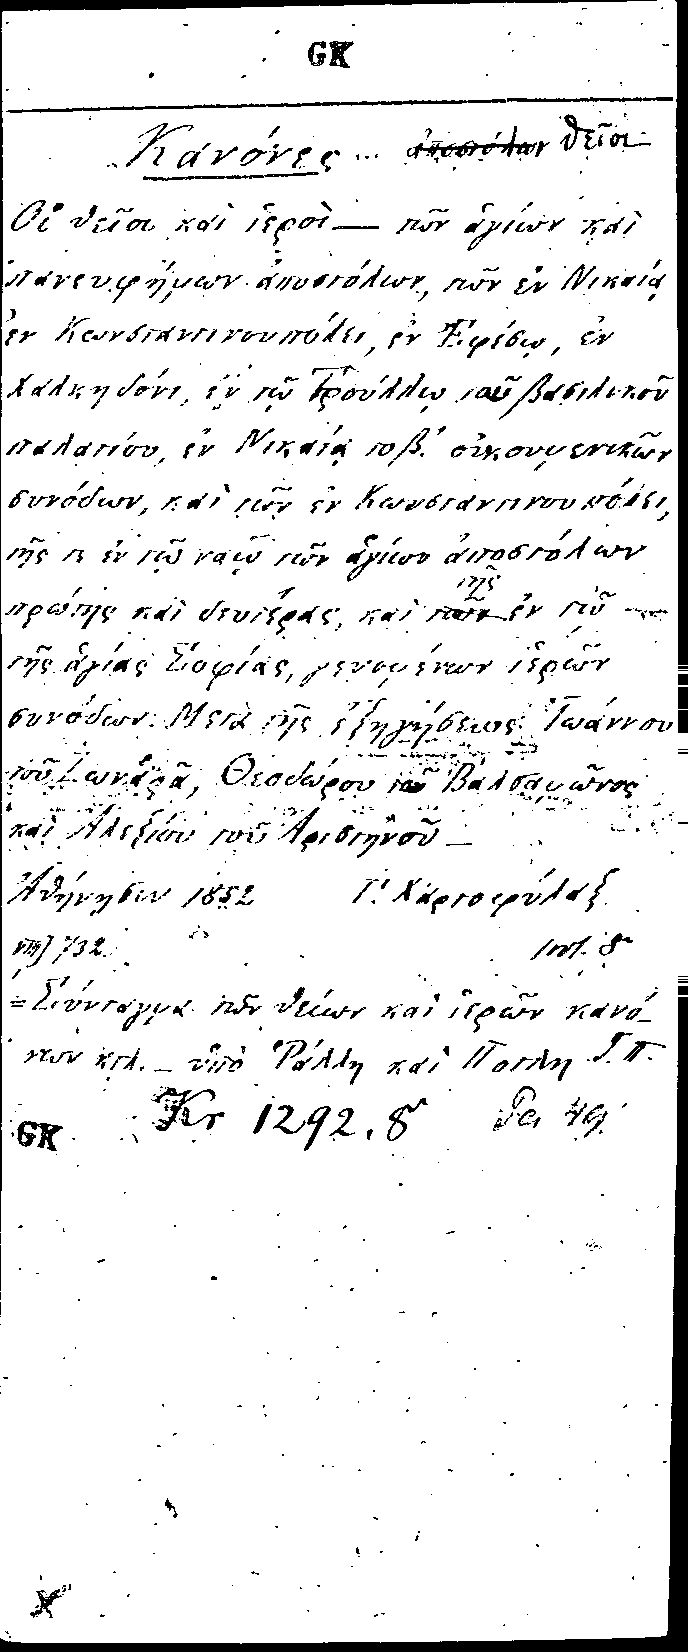 GK
Κανόνες ... ἀποστόλων θεῖοι
Οἱ θεῖοι καὶ ἱεροὶ — τῶν ἁγίων καὶ
πανευφήμων ἀποστόλων, τῶν ἐν Νικαίᾳ
ἐν Κωνσταντινουπόλει, ἐν Ἐφέσῳ, ἐν
Χαλκηδόνι, ἐν τῷ Τρούλλῳ τοῦ βασιλικοῦ
παλατίου, ἐν Νικαίᾳ τὸ β.' οἰκουμενικῶν
συνόδων, καὶ τῶν ἐν Κωνσταντινουπόλει,
τῆς τε ἐν τῷ ναῷ τῶν ἁγίων ἀποστόλων
τῆς
πρώτης καὶ δευτέρας, καὶ τῶν ἐν τῷ
τῆς ἁγίας Σοφίας, γενομένων ἱερῶν
συνόδων. Μετὰ τῆς ἐξηγήσεως Ἰωάννου
τοῦ Ζωναρᾶ, Θεοδώρου τοῦ Βαλσαμῶνος
καὶ Ἀλεξίου τοῦ Ἀριστηνοῦ —
Ἀθήνησιν 1852 Γ. Χαρτοφύλαξ
VIII] 732 8°
= Σύνταγμα τῶν θείων καὶ ἱερῶν κανό-
νων κτλ. — ὑπὸ Ῥάλλη καὶ Ποτλῆ Γ. Π.
Kr 1292. 8° 49.
GK
x